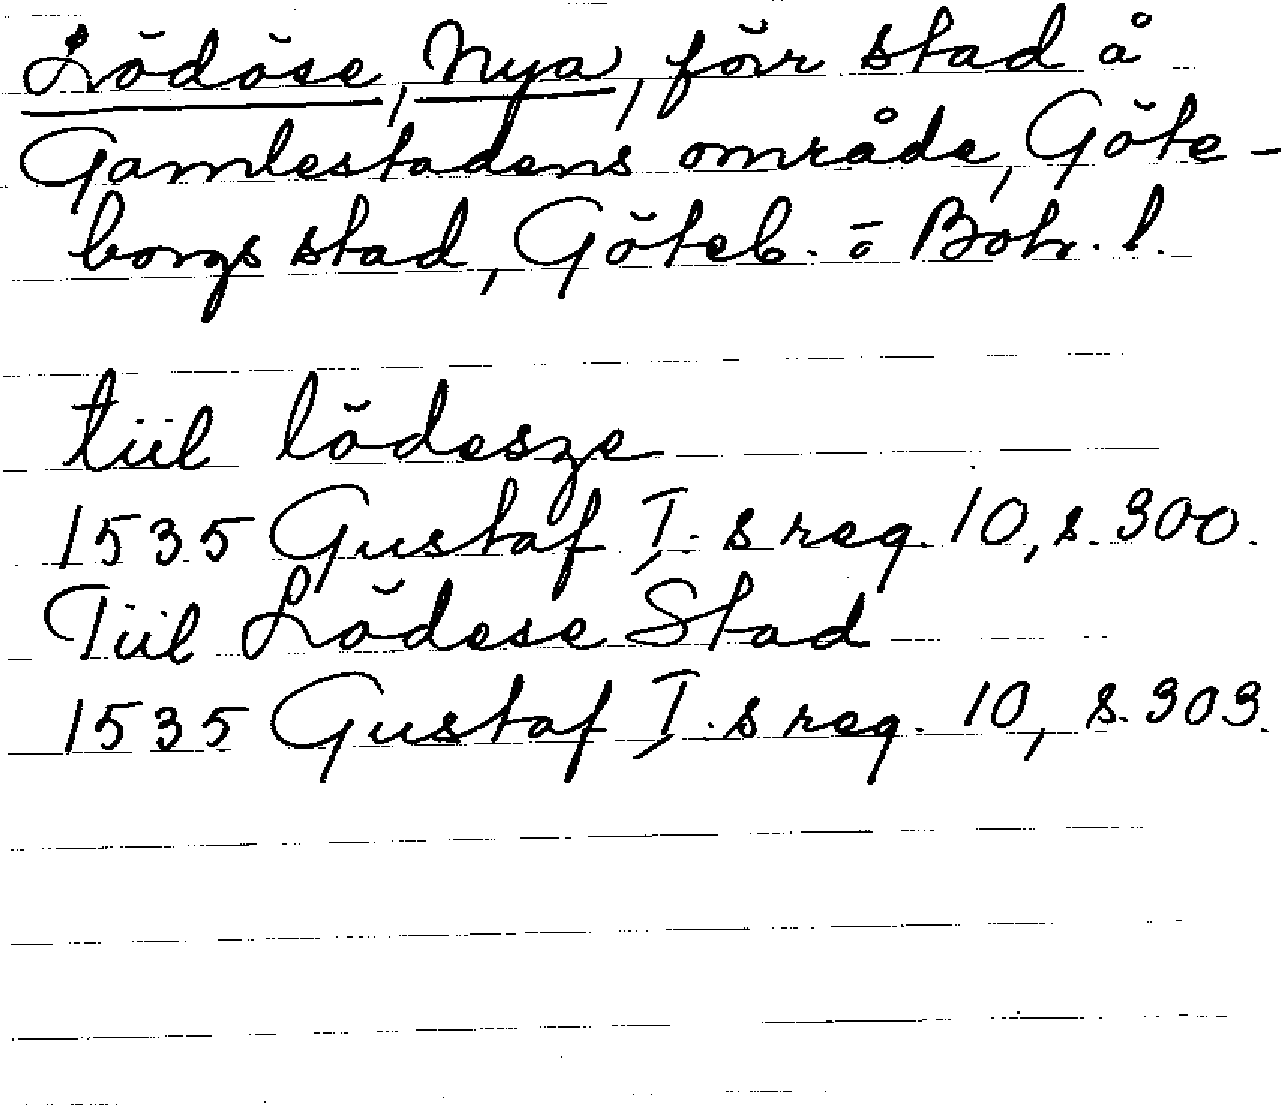 Lödöse, Nya, förr stad å
Gamlestadens område, Göte-
borgs stad, Göteb. o Boh. l.
tiil lödesze
1535 Gustaf I.s reg. 10, s. 300.
Tiil Lödese Stad
1535 Gustaf I.s reg. 10, s. 303.